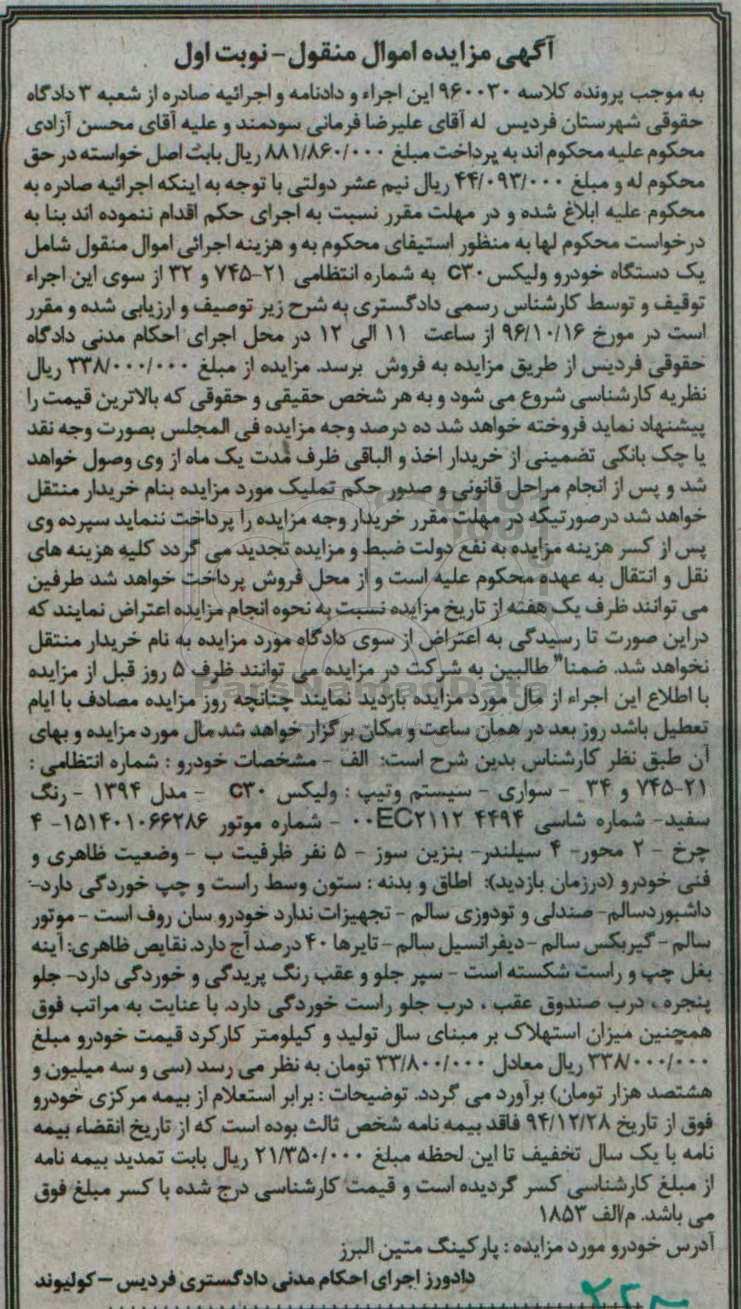 آگهی مزایده اموال منقول - نوبت اول
به موجب پرونده کلاسه ۹۶۰۰۳۰ این اجراء و دادنامه و اجرائیه صادره از شعبه ۳ دادگاه
حقوقی شهرستان فردیس له آقای علیرضا فرمانی سودمند و علیه آقای محسن آزادی
محکوم علیه محکوم اند به پرداخت مبلغ ۸۸۱/۸۶۰/۰۰۰ ریال بابت اصل خواسته در حق
محکوم له و مبلغ ۴۴/۰۹۳/۰۰۰ ریال نیم عشر دولتی با توجه به اینکه اجرائیه صادره به
محکوم علیه ابلاغ شده و در مهلت مقرر نسبت به اجرای حکم اقدام ننموده اند بنا به
درخواست محکوم لها به منظور استیفای محکوم به و هزینه اجرائی اموال منقول شامل
یک دستگاه خودرو ولیکس C۳۰ به شماره انتظامی ۲۱-۷۴۵ و ۳۲ از سوی این اجراء
توقیف و توسط کارشناس رسمی دادگستری به شرح زیر توصیف و ارزیابی شده و مقرر
است در مورخ ۹۶/۱۰/۱۶ از ساعت ۱۱ الی ۱۲ در محل اجرای احکام مدنی دادگاه
حقوقی فردیس از طریق مزایده به فروش برسد. مزایده از مبلغ ۳۳۸/۰۰۰/۰۰۰ ریال
نظریه کارشناسی شروع می شود و به هر شخص حقیقی و حقوقی که بالاترین قیمت را
پیشنهاد نماید فروخته خواهد شد ده درصد وجه مزایده فی المجلس بصورت وجه نقد
یا چک بانکی تضمینی از خریدار اخذ و الباقی ظرف مدت یک ماه از وی وصول خواهد
شد و پس از انجام مراحل قانونی و صدور حکم تملیک مورد مزایده بنام خریدار منتقل
خواهد شد درصورتیکه در مهلت مقرر خریدار وجه مزایده را پرداخت ننماید سپرده وی
پس از کسر هزینه مزایده به نفع دولت ضبط و مزایده تجدید می گردد کلیه هزینه های
نقل و انتقال به عهده محکوم علیه است و از محل فروش پرداخت خواهد شد طرفین
می توانند ظرف یک هفته از تاریخ مزایده نسبت به نحوه انجام مزایده اعتراض نمایند که
دراین صورت تا رسیدگی به اعتراض از سوی دادگاه مورد مزایده به نام خریدار منتقل
نخواهد شد. ضمنا" طالبین به شرکت در مزایده می توانند ظرف ۵ روز قبل از مزایده
با اطلاع این اجراء از مال مورد مزایده بازدید نمایند چنانچه روز مزایده مصادف با ایام
تعطیل باشد روز بعد در همان ساعت و مکان برگزار خواهد شد مال مورد مزایده و بهای
آن طبق نظر کارشناس بدین شرح است: الف - مشخصات خودرو : شماره انتظامی :
۲۱-۷۴۵ و ۳۴ - سواری - سیستم وتیپ : ولیکس C۳۰ - مدل ۱۳۹۴ - رنگ
سفید- شماره شاسی ۰۰EC۲۱۱۲ ۴۴۹۴ - شماره موتور ۱۵۱۴۰۱۰۶۶۲۸۶- ۴
چرخ - ۲ محور- ۴ سیلندر- بنزین سوز - ۵ نفر ظرفیت ب - وضعیت ظاهری و
فنی خودرو (درزمان بازدید): اطاق و بدنه : ستون وسط راست و چپ خوردگی دارد-
داشبوردسالم- صندلی و تودوزی سالم - تجهیزات ندارد خودرو سان روف است - موتور
سالم - گیربکس سالم -دیفرانسیل سالم - تایرها ۴۰ درصد آج دارد. نقایص ظاهری: آینه
بغل چپ و راست شکسته است - سپر جلو و عقب رنگ پریدگی و خوردگی دارد- جلو
پنجره ، درب صندوق عقب ، درب جلو راست خوردگی دارد. با عنایت به مراتب فوق
همچنین میزان استهلاک بر مبنای سال تولید و کیلومتر کارکرد قیمت خودرو مبلغ
۳۳۸/۰۰۰/۰۰۰ ریال معادل ۳۳/۸۰۰/۰۰۰ تومان به نظر می رسد (سی و سه میلیون و
هشتصد هزار تومان) برآورد می گردد. توضیحات : برابر استعلام از بیمه مرکزی خودرو
فوق از تاریخ ۹۴/۱۲/۲۸ فاقد بیمه نامه شخص ثالث بوده است که از تاریخ انقضاء بیمه
نامه با یک سال تخفیف تا این لحظه مبلغ ۲۱/۳۵۰/۰۰۰ ریال بابت تمدید بیمه نامه
از مبلغ کارشناسی کسر گردیده است و قیمت کارشناسی درج شده با کسر مبلغ فوق
می باشد. م/الف ۱۸۵۳
آدرس خودرو مورد مزایده : پارکینگ متین البرز
دادورز اجرای احکام مدنی دادگستری فردیس - کولیوند
ParsNamadData